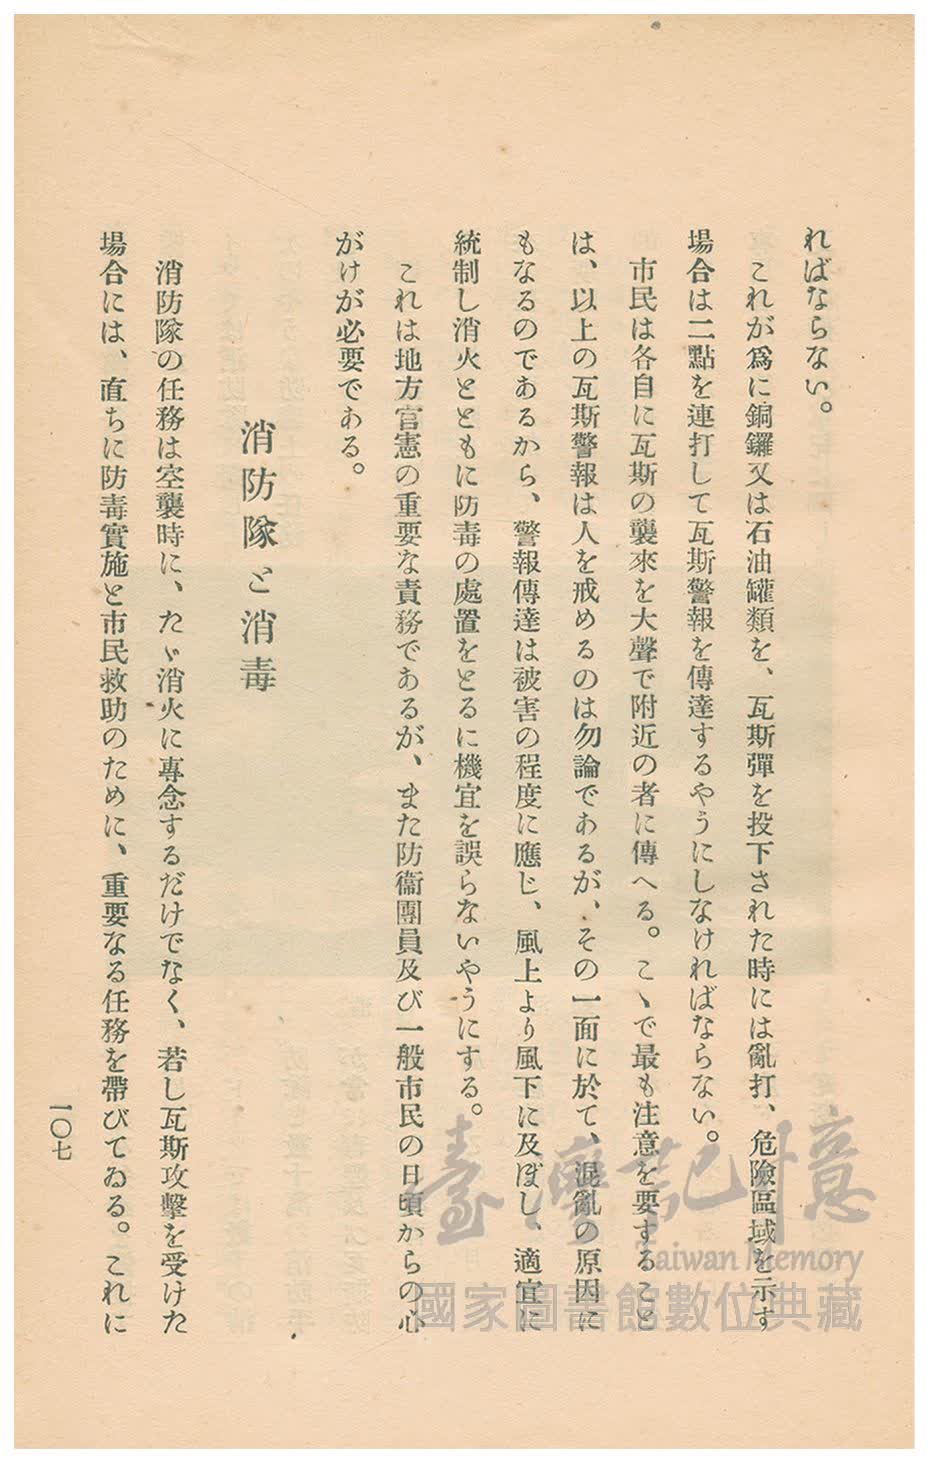 ればならない。
これが爲に銅鑼又は石油罐類を、瓦斯彈を投下された時には亂打、危險區域を示す
場合は二點を連打して瓦斯警報を傳達するやうにしなければならない。
市民は各自に瓦斯の襲來を大聲で附近の者に傳へる。こゝで最も注意を要すること
は、以上の瓦斯警報は人を戒めるのは勿論であるが、その一面に於て、混亂の原因に
もなるのであるから、警報傳達は被害の程度に應じ、風上より風下に及ぼし、適宜に
統制し消火とともに防毒の處置をとるに機宜を誤らないやうにする。
これは地方官憲の重要な責務であるが、また防衞團員及び一般市民の日頃からの心
がけが必要である。
消防隊と消毒
消防隊の任務は空襲時に、たゞ消火に專念するだけでなく、若し瓦斯攻擊を受けた
場合には、直ちに防毒實施と市民救助のために、重要なる任務を帶びてゐる。これに
一〇七
臺灣記憶
Taiwan Memory
國家圖書館數位典藏